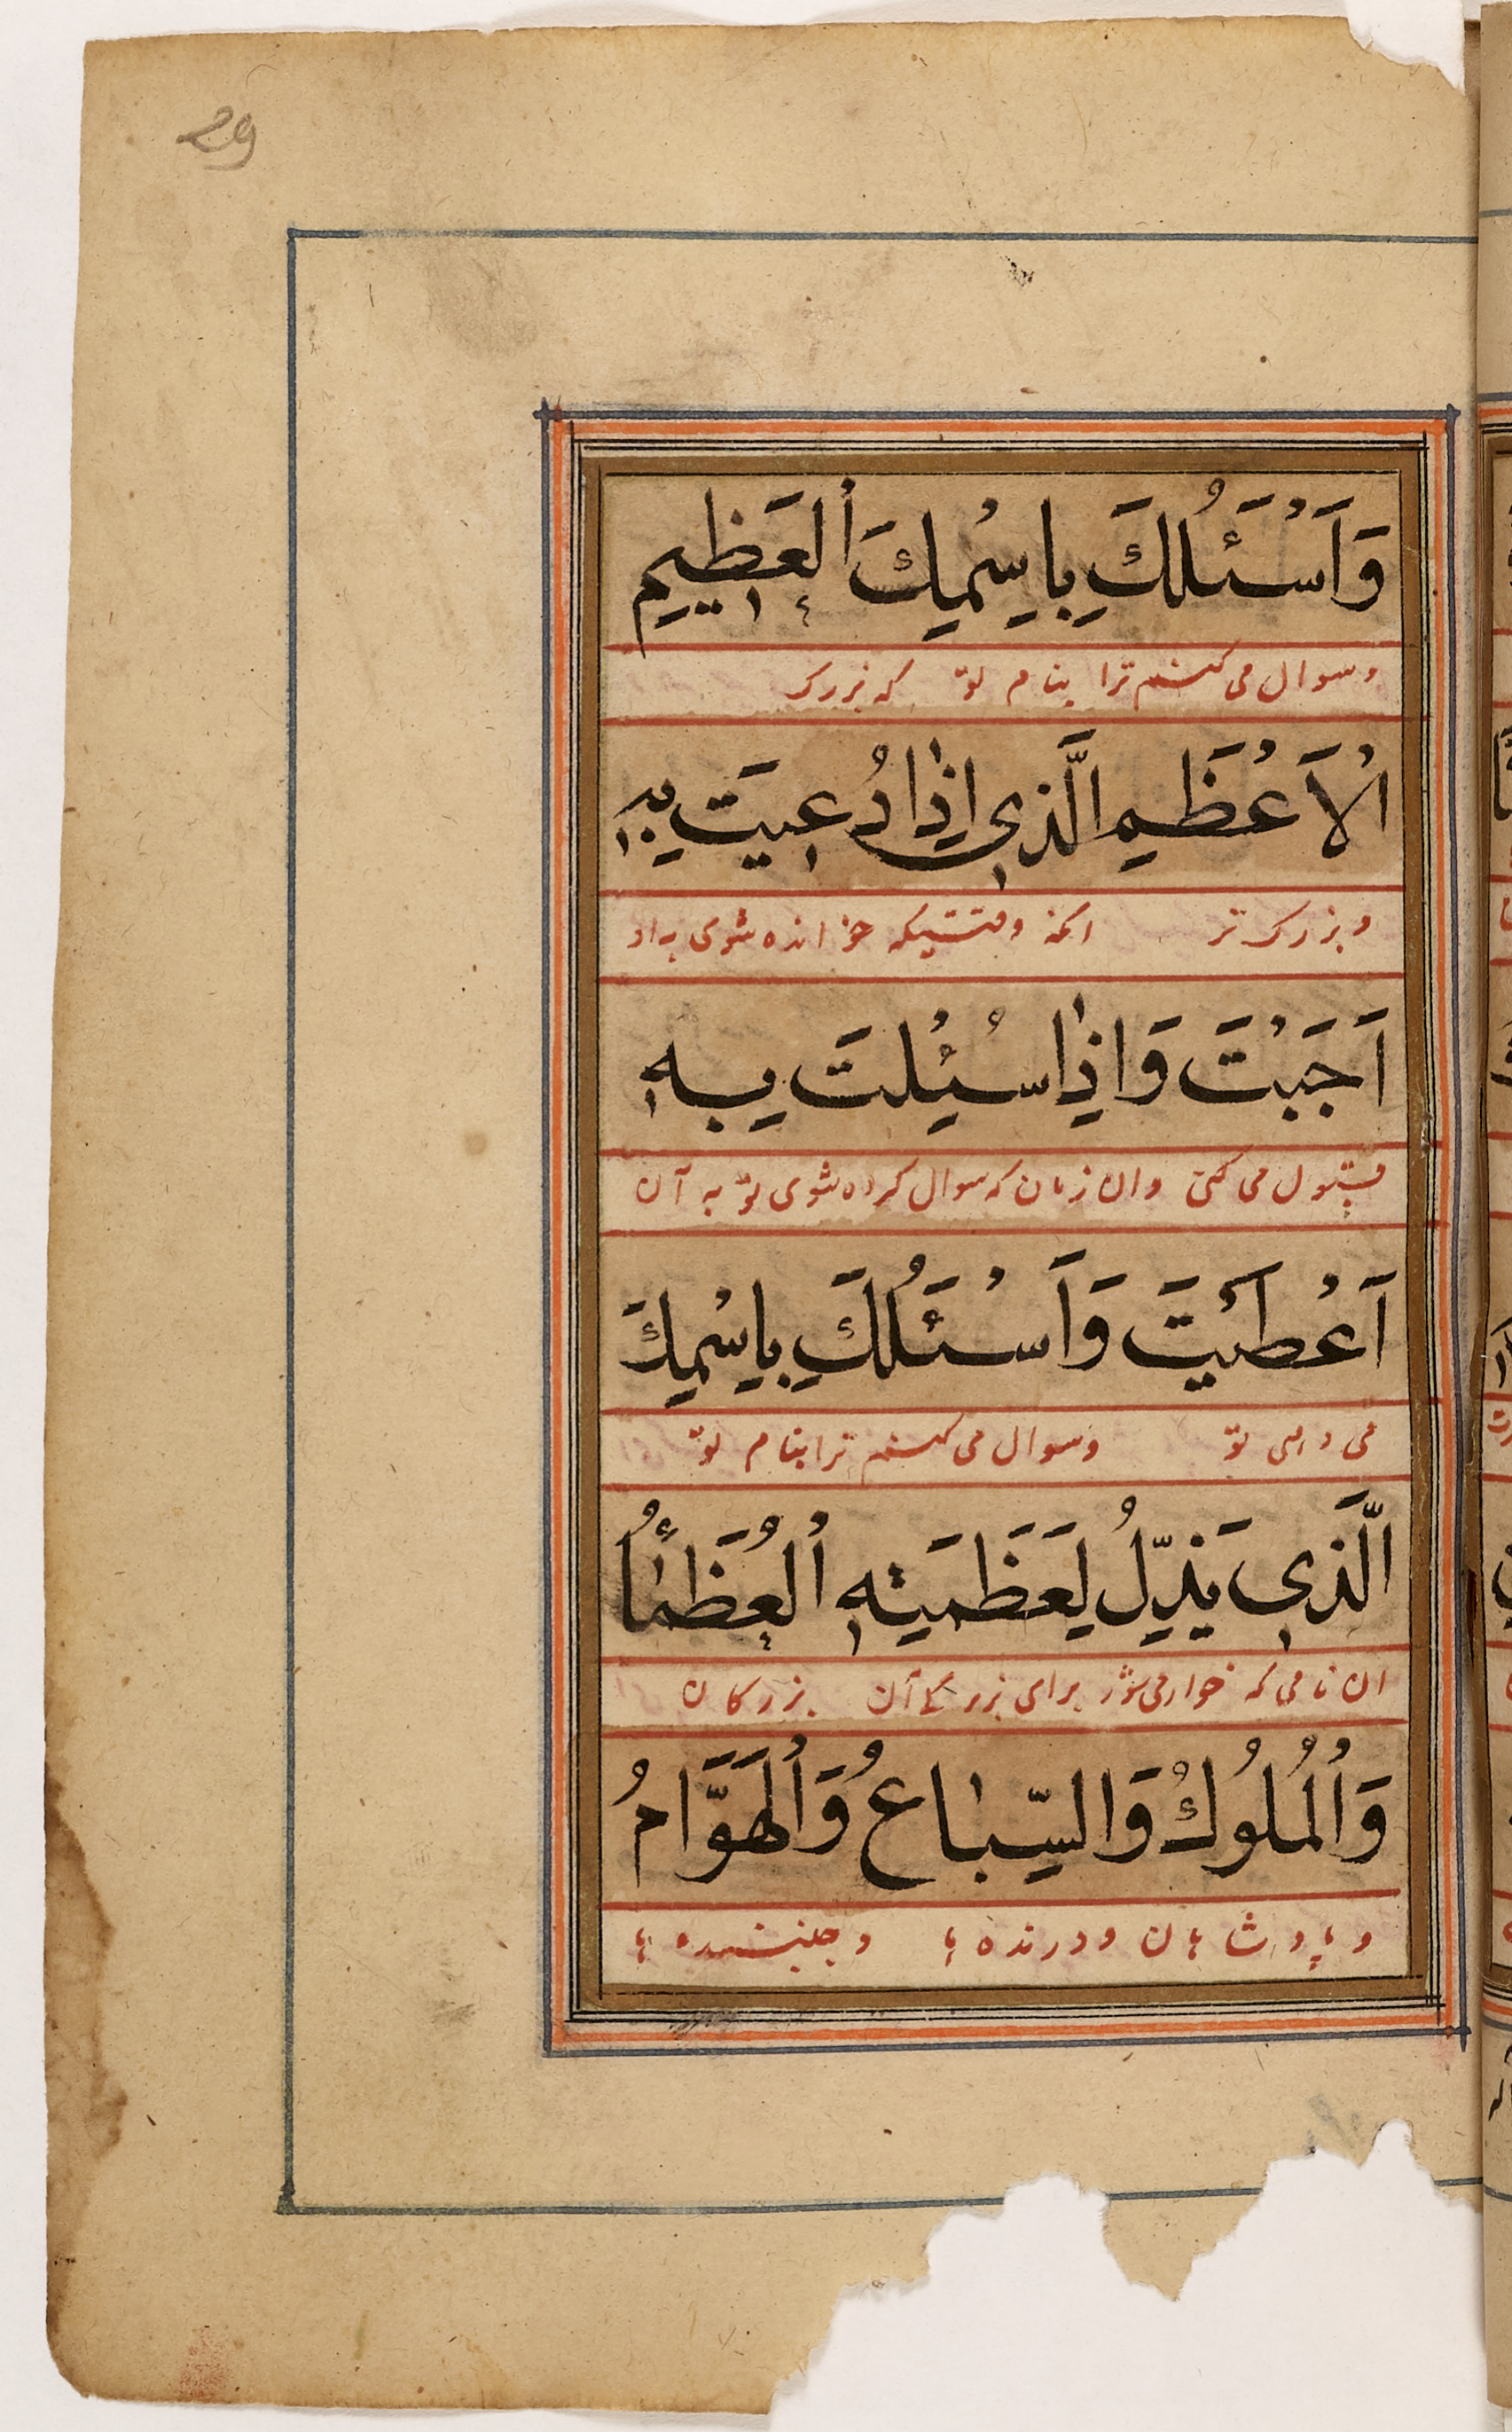 29
وَاَسْئَلُكَ بِاِسْمِكَ اْلعَظِيمِ
و سوال می کنم ترا بنام تو که بزرک
اْلاَعْظَمِ الَّذِي اِذٰا دُعِيتَ بِهِ
و بزرک تر انکه وقتیکه خوانده شوی به او
اَجَبْتَ وَاِذٰا سُئِلْتَ بِهِ
قبول می کنی و ان زمان که سوال کرده شوی تو به آن
اَعْطَيْتَ وَاَسْئَلُكَ بِاِسْمِكَ
می دهی تو و سوال می کنم ترا بنام تو
الَّذِي يَذِلُّ لِعَظَمَتِهِ اْلعُظَمٰاءُ
ان نامی که خوار می شود برای بزرگی آن بزرکان
وَاْلمُلُوكُ وَالسِّبٰاعُ وَاْلهَوَّامُ
و پادشاهان و درنده ها و جنبنده ها